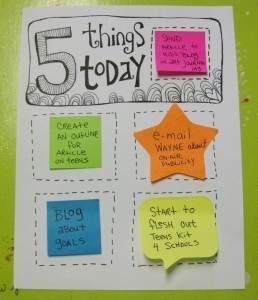 5 things
today
SEND
ARTICLE to
HOST BLOG
ON ART JOURNALING
CREATE
AN OUTLINE
FOR
ARTICLE
ON TEENS
e-mail
WAYNE about
ON-AIR
PUBLICITY
BLOG
about
GOALS
START to
flesh out
TEENS KIT
4 SCHOOLS